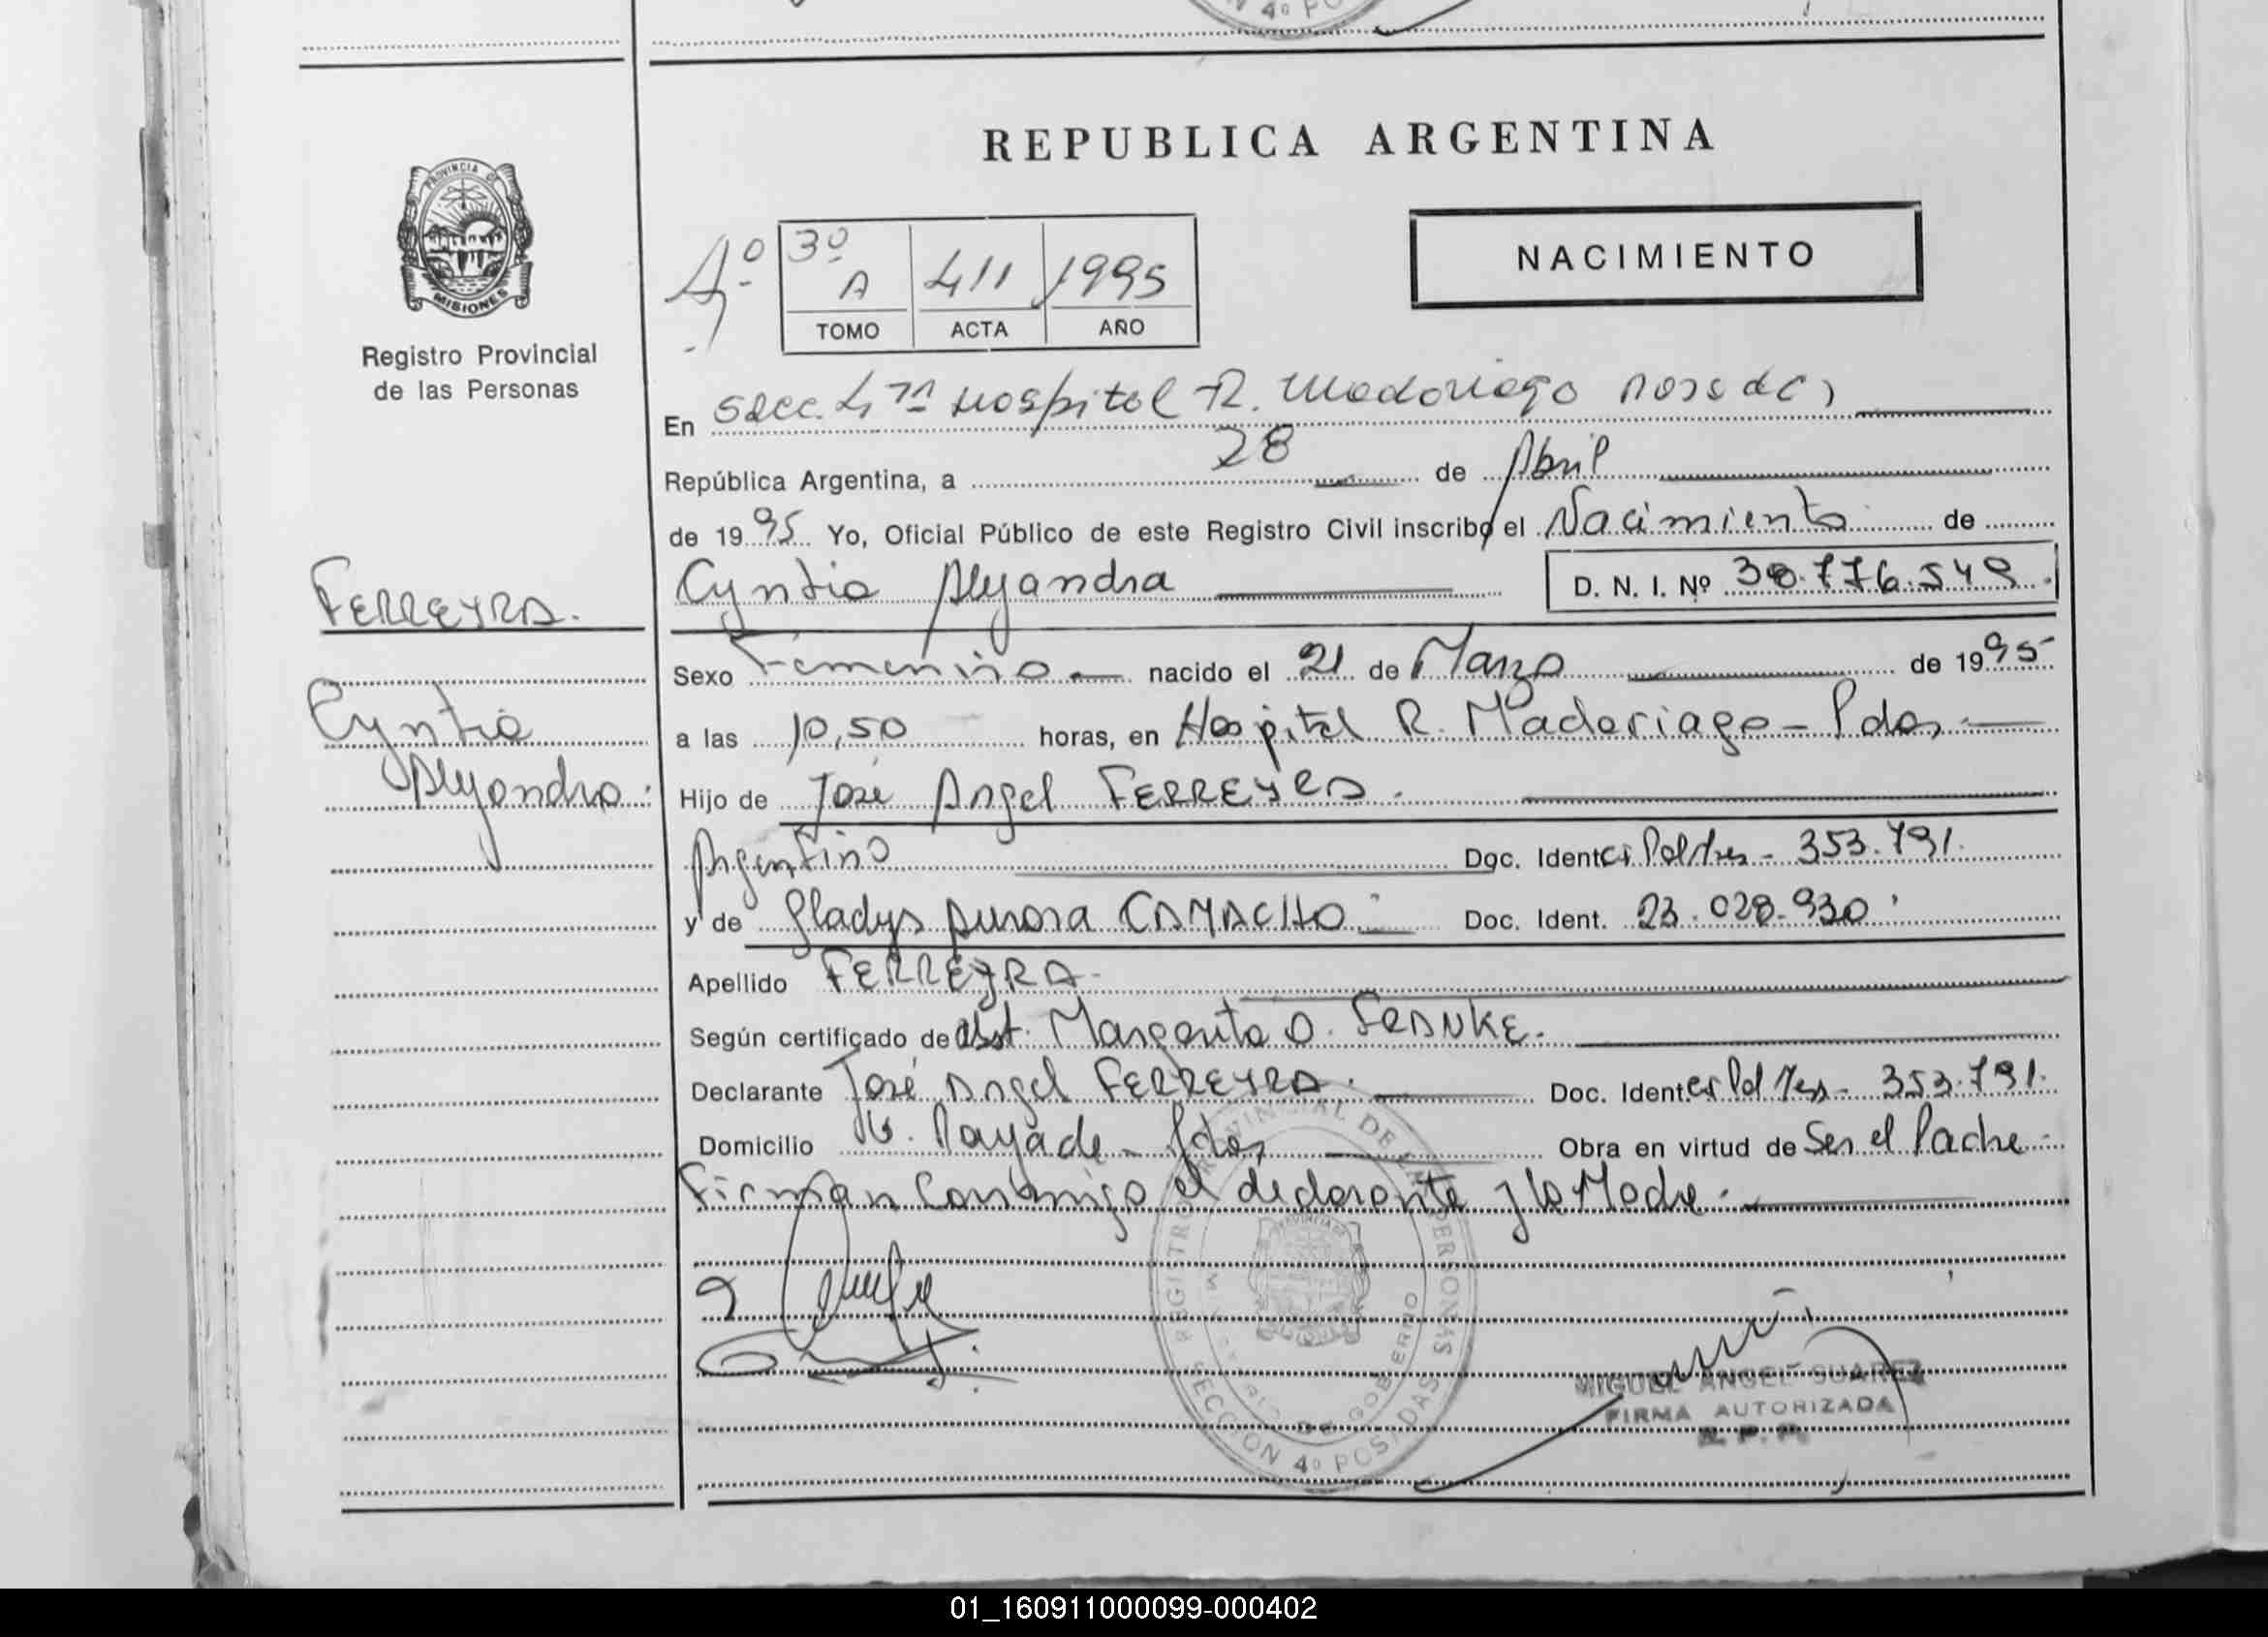 REPUBLICA ARGENTINA
PROVINCIA DE
MISIONES
Registro Provincial
de las Personas
4º
3º A 411 1995
TOMO ACTA AÑO
NACIMIENTO
En Secc. 4ta Hospital R. Madariaga
República Argentina, a 28 de Abril
de 1995 Yo, Oficial Público de este Registro Civil inscribo el Nacimiento de
FERREYRA.
Cyntia Alejandra D. N. I. Nº 38.776.549.
Sexo Femenino nacido el 21 de Marzo de 1995
Cyntia
a las 10,50 horas, en Hospital R. Madariaga - Pdas,
Alejandra
Hijo de José Angel FERREYRA.
Argentino Doc. Ident. 353.791.
y de Gladys Aurora CAMACHO Doc. Ident. 23.028.930
Apellido FERREYRA
Según certificado de Obst. Margarita O. FRANKE.
Declarante José Angel FERREYRA. Doc. Ident. 353.791.
Domicilio Pdas, Obra en virtud de Ser el Padre
Firman conmigo el declarante y la Madre.
REGISTRO PROVINCIAL DE LAS PERSONAS
SECCION 4º POSADAS
MIGUEL ANGEL SUAREZ
FIRMA AUTORIZADA
R. P. P.
01_160911000099-000402